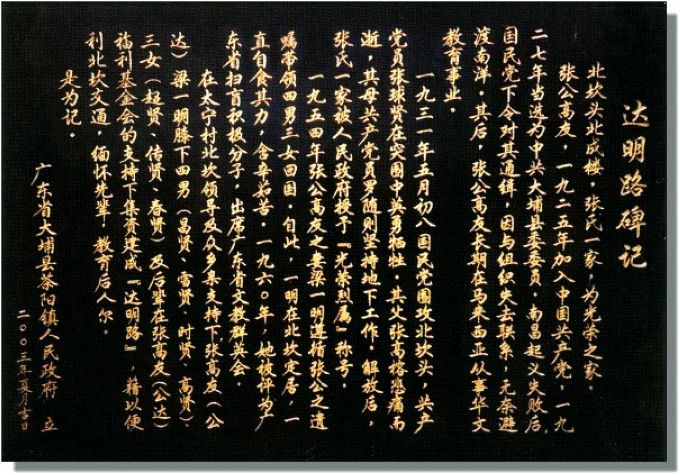 达明路碑记
北坎头北成楼，张氏一家，为光荣之家。
张公高友，一九二五年加入中国共产党，一九
二七年当选为中共大埔县委委员，南昌起义失败后，
国民党下令对其通缉，因与组织失去联系，无奈避
渡南洋。其后，张公高友长期在马来西亚从事华文
教育事业。
一九三一年五月初八国民党围攻北坎头，共产
党员张球贤在突围中英勇牺牲，其父张高榕悲痛而
逝，其母共产党员罗随则坚持地下工作。解放后，
张氏一家被人民政府授予『光荣烈属』称号。
一九五四年张公高友之妻梁一明遵循张公之遗
嘱带领四男三女回国，自此，一明在北坎定居，一
直自食其力，含辛茹苦。一九六〇年，她被评为广
东省扫盲积极分子，出席广东省文教群英会。
在太宁村北坎领导及众乡亲支持下，张高友（公
达）梁一明膝下四男（昌贤、雪贤、时贤、高贤）
三女（超贤、传贤、春贤）及后辈在张高友（公达）
福利基金会的支持下集资建成『达明路』，藉以便
利北坎交通，缅怀先辈，教育后人尔。
是为记。
广东省大埔县茶阳镇人民政府 立
二〇〇三年夏月吉日